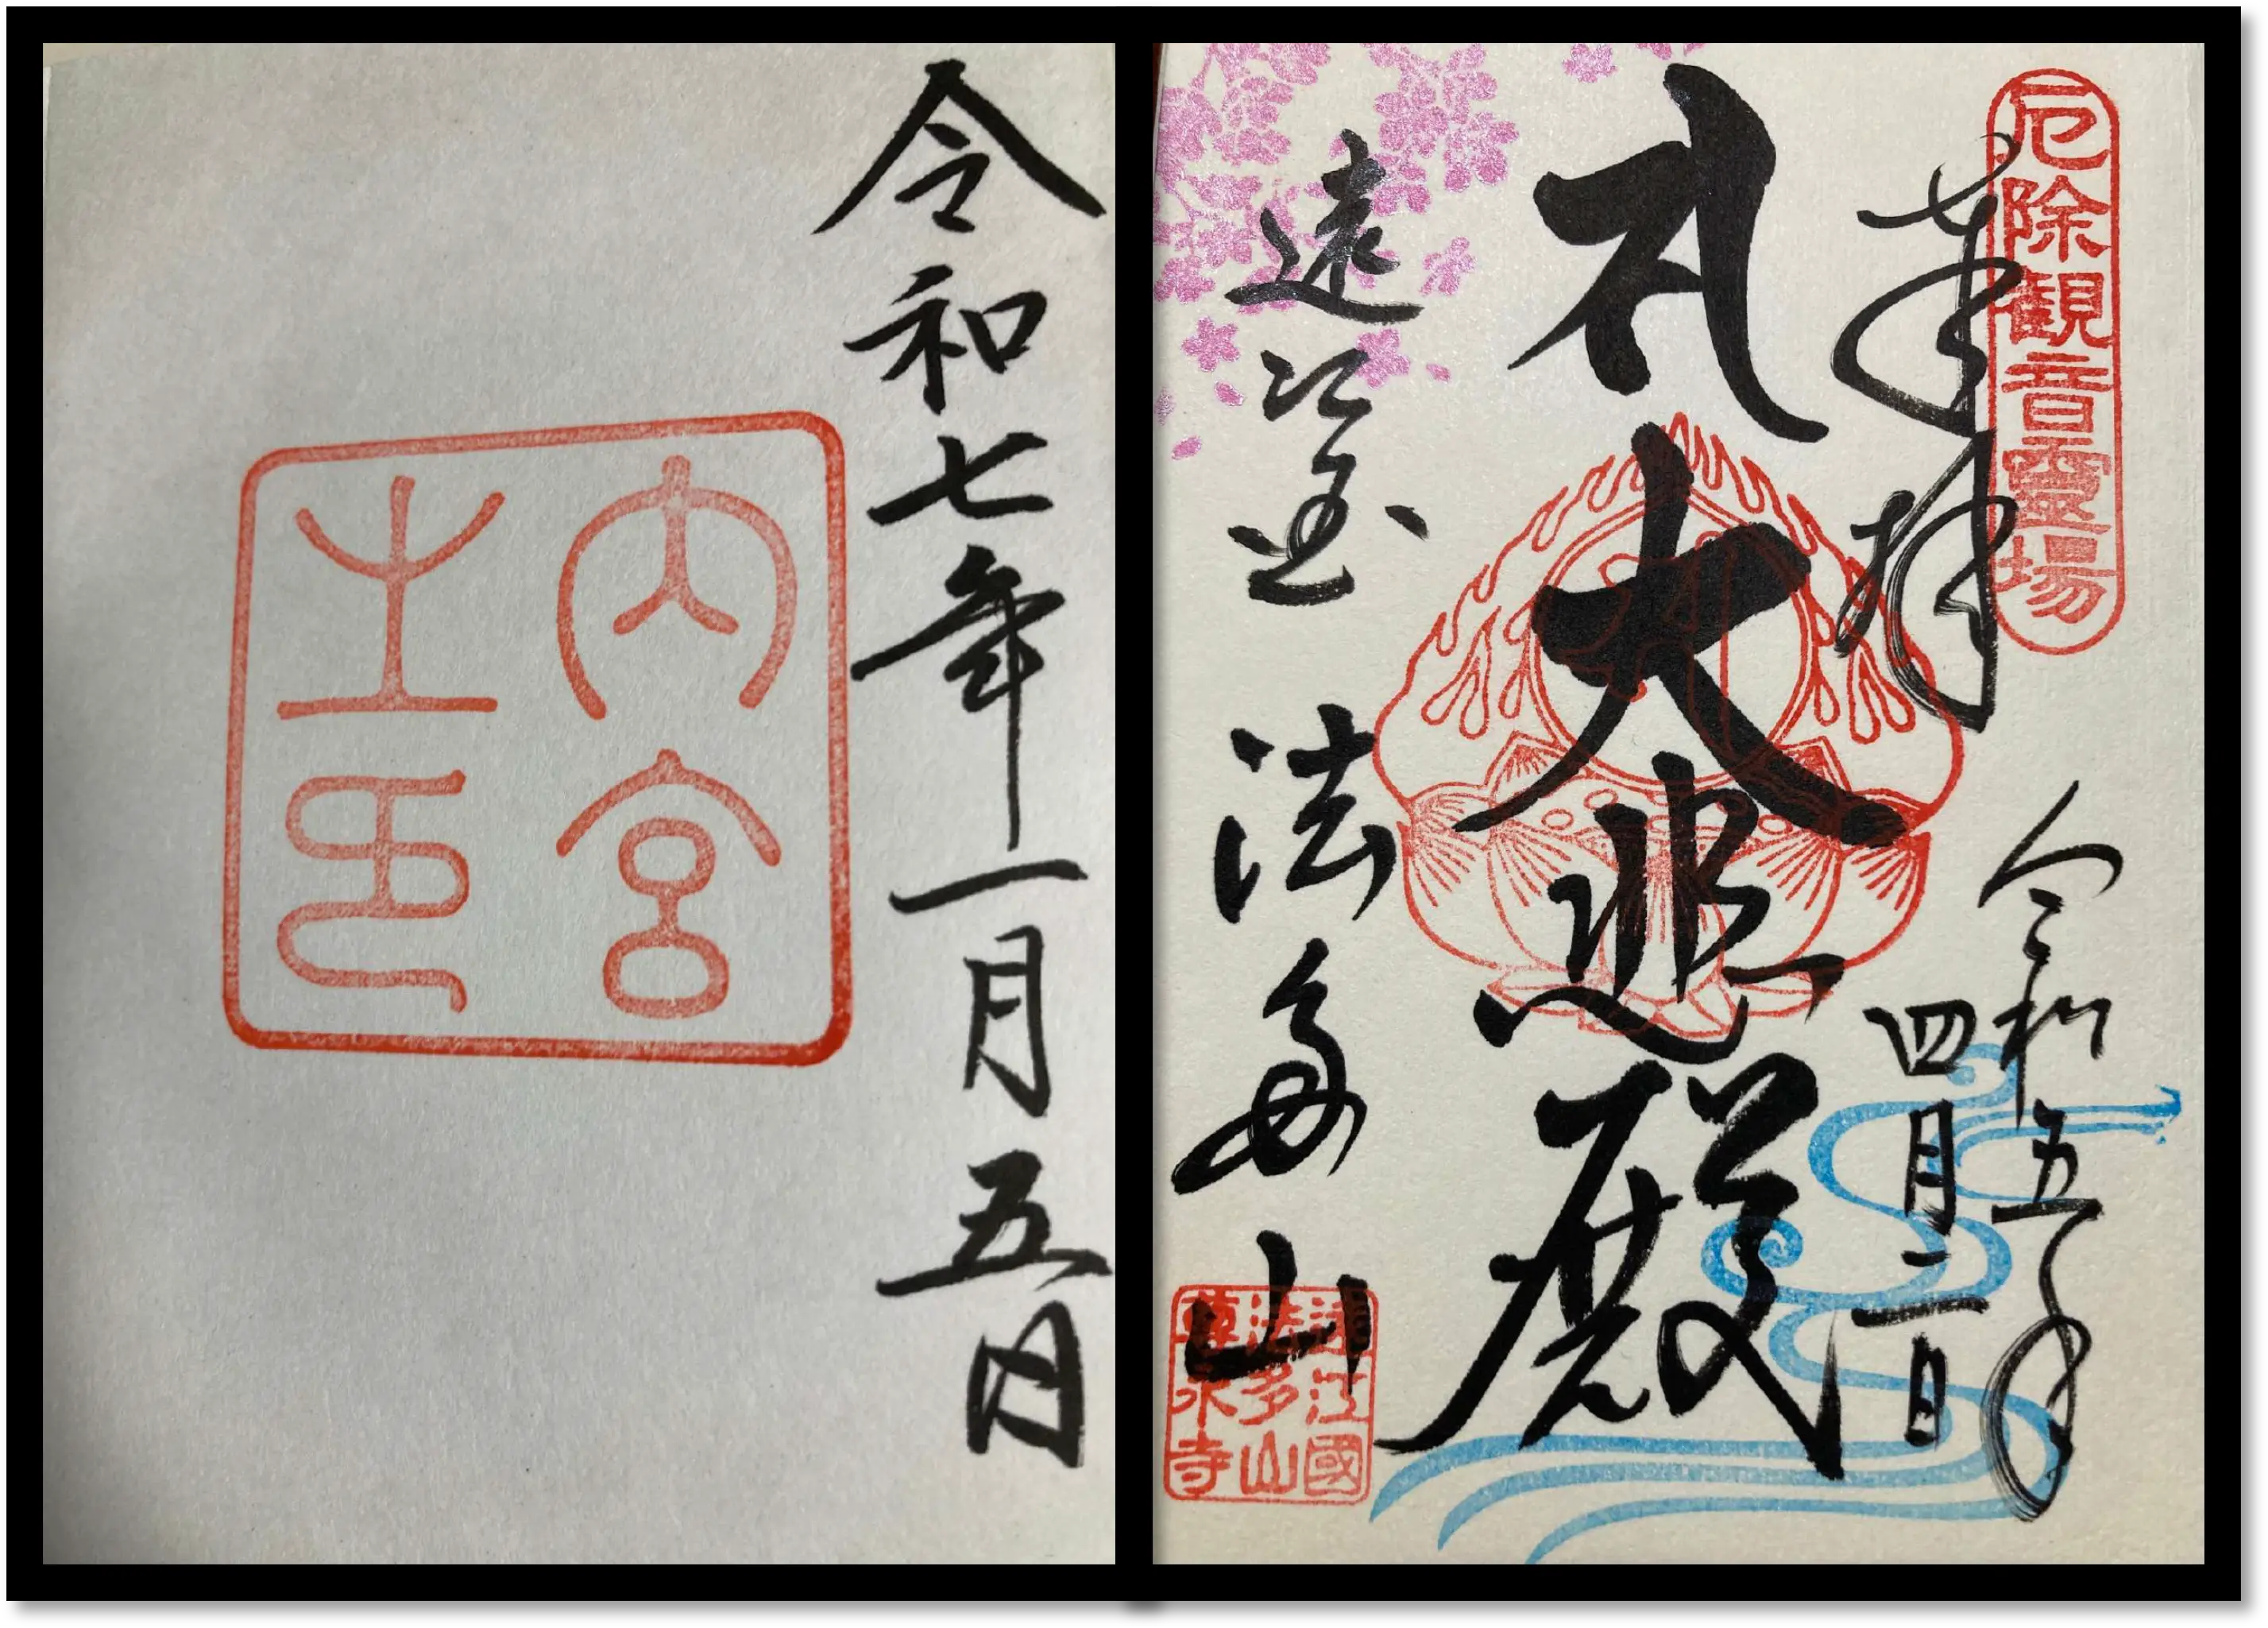 令和七年一月五日
内宮
之印
厄除観音霊場
奉拝
令和五年
四月二日
大悲殿
遠江国 法多山
遠江國
法多山
尊永寺